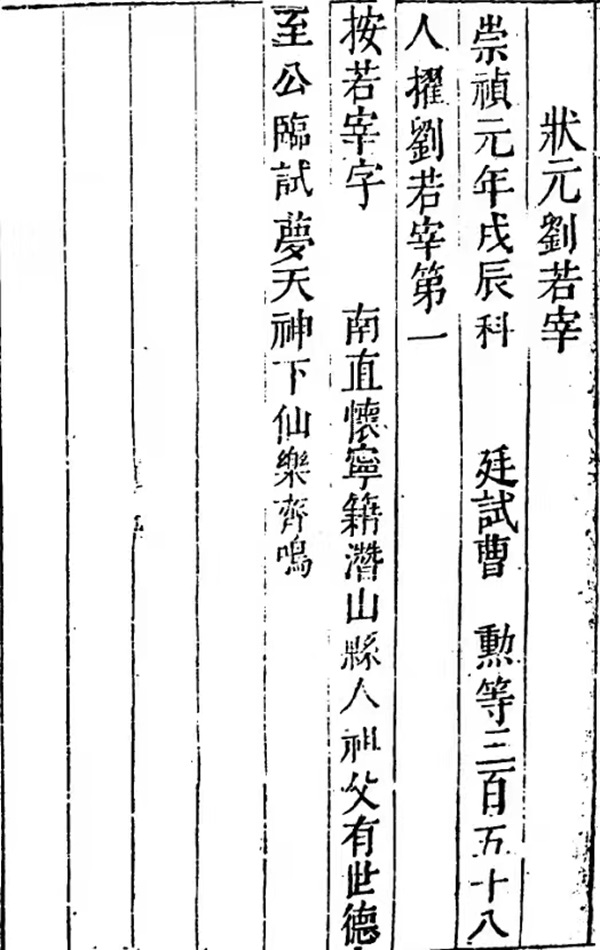 狀元劉若宰
崇禎元年戊辰科 廷試曹 勳等三百五十八
人擢劉若宰第一
按若宰字 南直懷寧籍潛山縣人祖父有世德
至公臨試夢天神下仙樂齊鳴